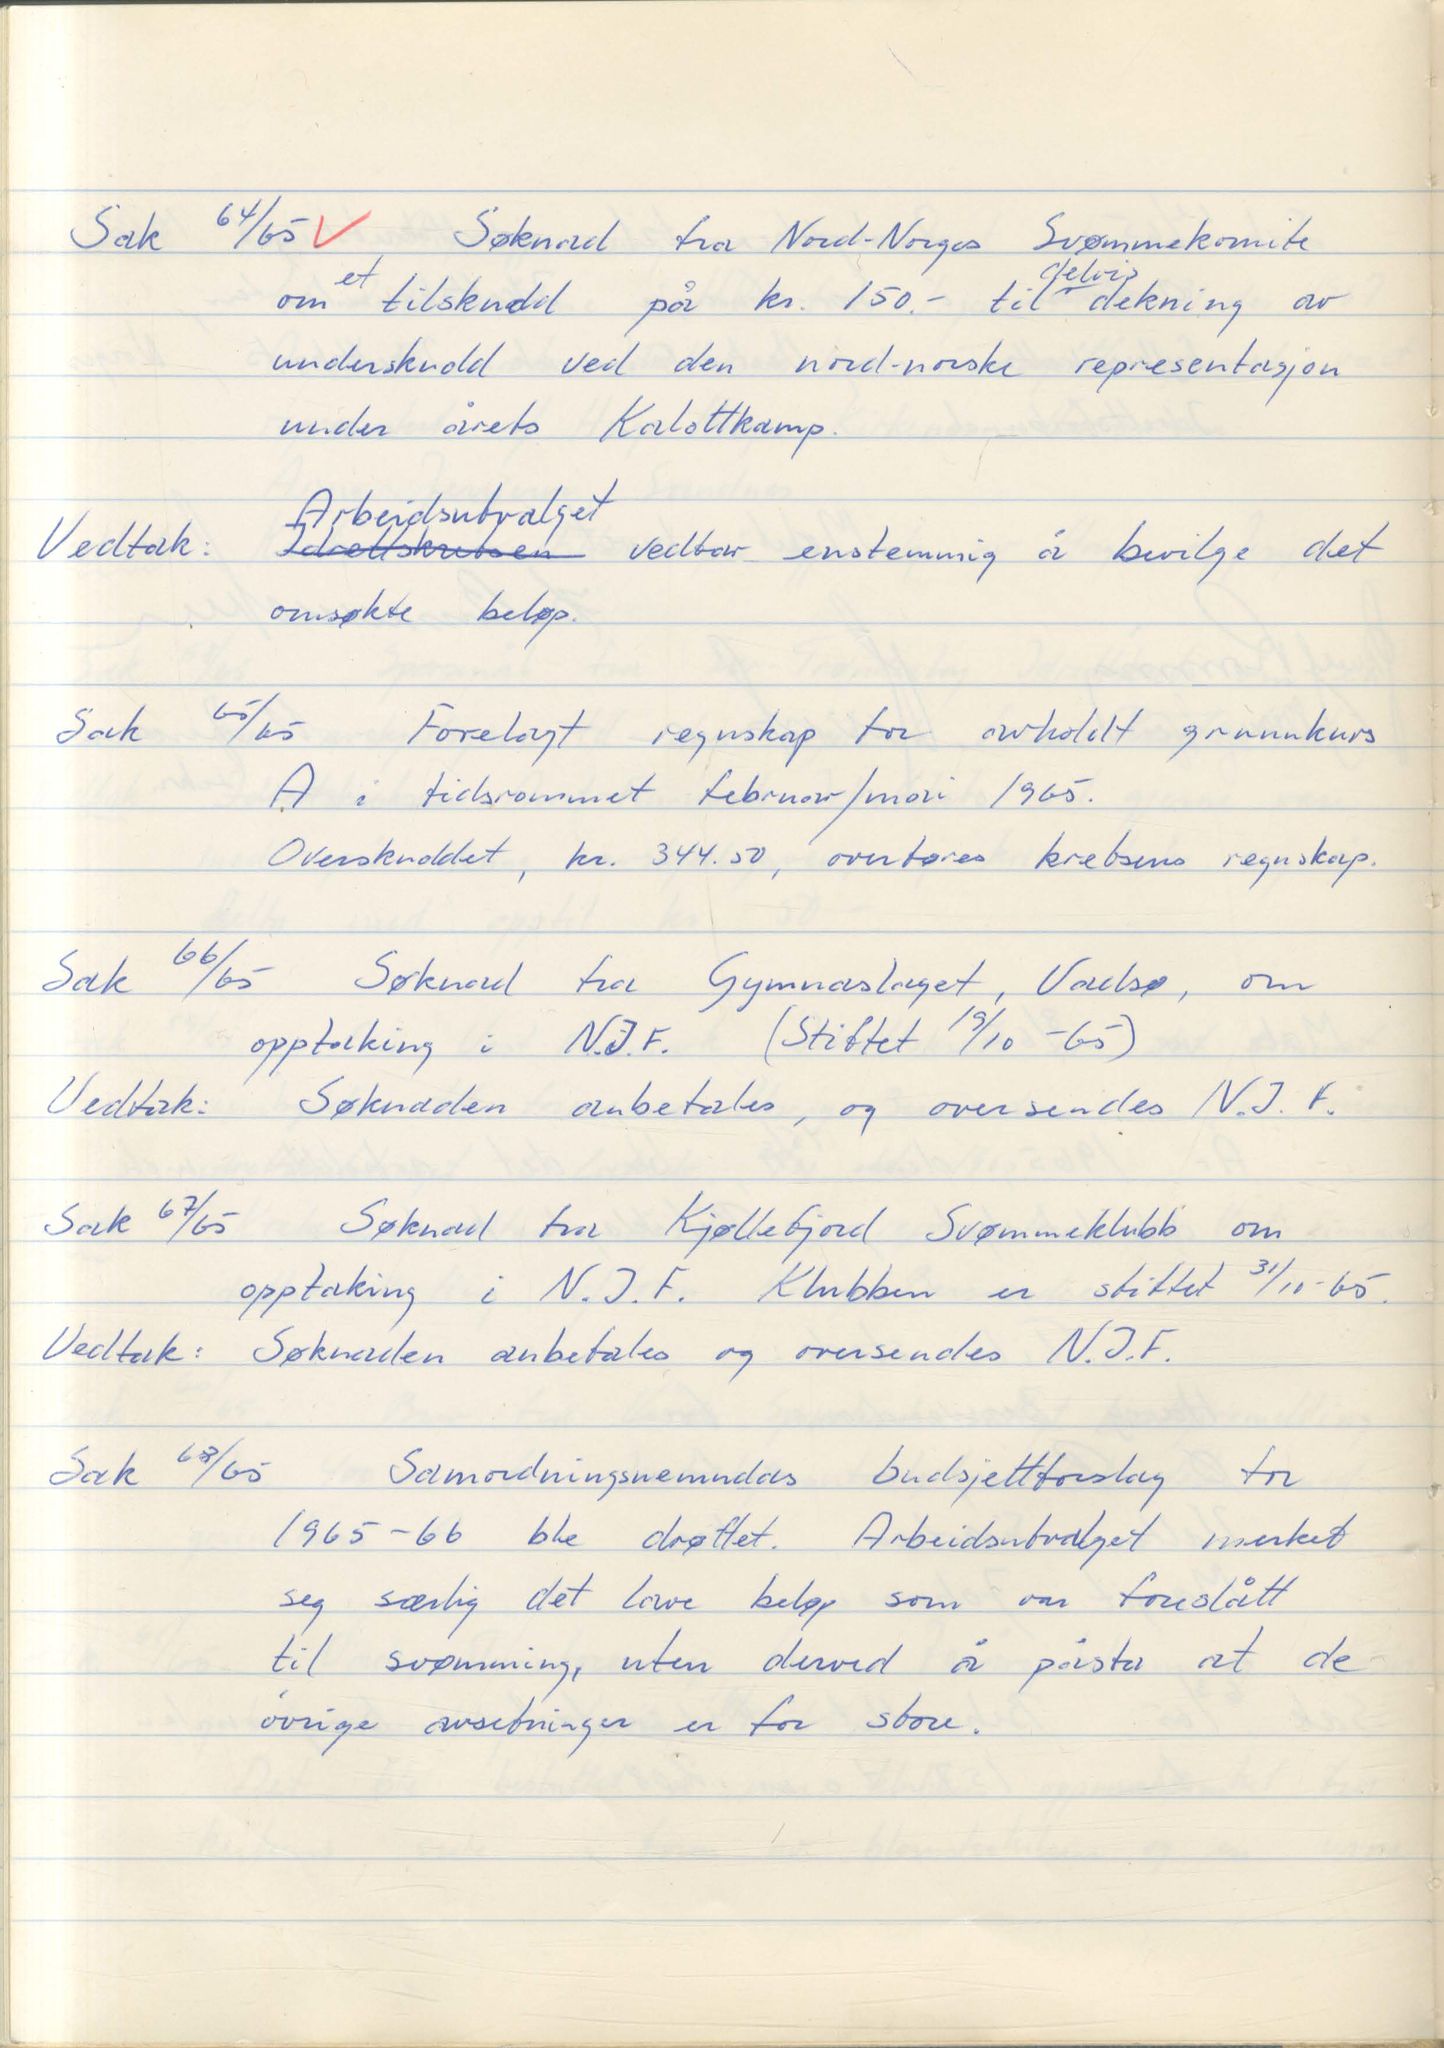 Sak 64/65 V Søknad fra Nord-Norges Svømmekomite
om et tilskudd på kr. 150.- til delvis dekning av
underskudd ved den nord-norske representasjon
under årets Kalottkamp.
Arbeidsutvalget
Vedtak: Idrettskretsen vedtar enstemmig å bevilge det
omsøkte beløp.
Sak 65/65 Forelagt regnskap for avholdt grunnkurs
A i tidsrommet februar/mars 1965.
Overskuddet, kr. 344.50, overføres kretsens regnskap.
Sak 66/65 Søknad fra Gymnaslaget, Vadsø, om
opptaking i N.I.F. (Stiftet 19/10 -65)
Vedtak: Søknaden anbefales, og oversendes N.I.F.
Sak 67/65 Søknad fra Kjøllefjord Svømmeklubb om
opptaking i N.I.F. Klubben er stiftet 31/10-65.
Vedtak: Søknaden anbefales og oversendes N.I.F.
Sak 68/65 Samordningsnemndas budsjettforslag for
1965-66 ble drøftet. Arbeidsutvalget merket
seg særlig det lave beløp som var foreslått
til svømming, uten derved å påstå at de
øvrige avsetninger er for store.